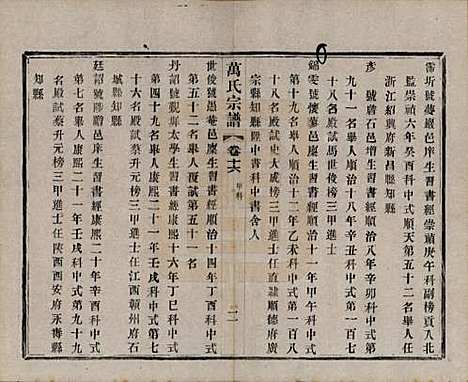 霈圻號巖巖邑庠生習書經崇禎庚午科副榜貢入北
監崇禎六年癸酉科中式順天第五十二名舉人任
浙江紹興府新昌縣知縣
彥 號礐石邑增生習書經順治八年辛卯科中式第
九十一名舉人順治十八年辛丑科中式第一百七
十八名殿試馬世俊榜三甲進士
錦雯號懷蓼邑庠生習書經順治十一年甲午科中式
第十九名舉人順治十二年乙未科中式第一百八
十名殿試史大成榜三甲進士任直隸順德府廣
宗縣知縣陞中書科中書舍人
萬氏宗譜
卷十六 甲科
二
世俊號愚菴邑廩生習書經順治十四年丁酉科中式
第五十二名舉人覆試第五十一名
丹詔號觀庠太學生習書經康熙十六年丁巳科中式
第四十九名舉人康熙二十一年壬戌科中式第七
十六名殿試蔡升元榜三甲進士任江西贛州府石
城縣知縣
廷詔號陟瞻邑增生習書經康熙二十年辛酉科中式
第七名舉人康熙二十一年壬戌科中式第九十九
名殿試蔡升元榜三甲進士任陝西西安府永壽縣
知縣